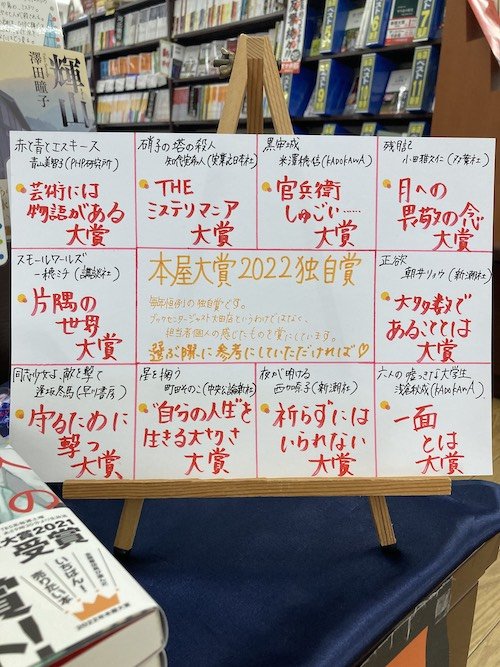 輝山
澤田瞳子
赤と青とエスキース
青山美智子(PHP研究所)
芸術には
物語がある
大賞
硝子の塔の殺人
知念実希人(実業之日本社)
THE
ミステリマニア
大賞
黒牢城
米澤穂信(KADOKAWA)
官兵衛
しゅごい……
大賞
残月記
小田雅久仁(双葉社)
月への
畏敬の念
大賞
スモールワールズ
一穂ミチ(講談社)
片隅の
世界
大賞
本屋大賞2022独自賞
毎年恒例の独自賞です。
ブックセンタージャスト大田店というわけではなく、
担当者個人の感じたものを賞にしています。
選ぶ際に参考にしていただければ♡
正欲
朝井リョウ(新潮社)
大多数で
あることとは
大賞
同志少女よ、敵を撃て
逢坂冬馬(早川書房)
守るために
撃つ
大賞
星を掬う
町田そのこ(中央公論新社)
"自分の人生"を
生きる大切さ
大賞
夜が明ける
西加奈子(新潮社)
祈らずには
いられない
大賞
六人の嘘つきな大学生
浅倉秋成(KADOKAWA)
一面
とは
大賞
大賞2021
受賞
いちばん!
売りたい本